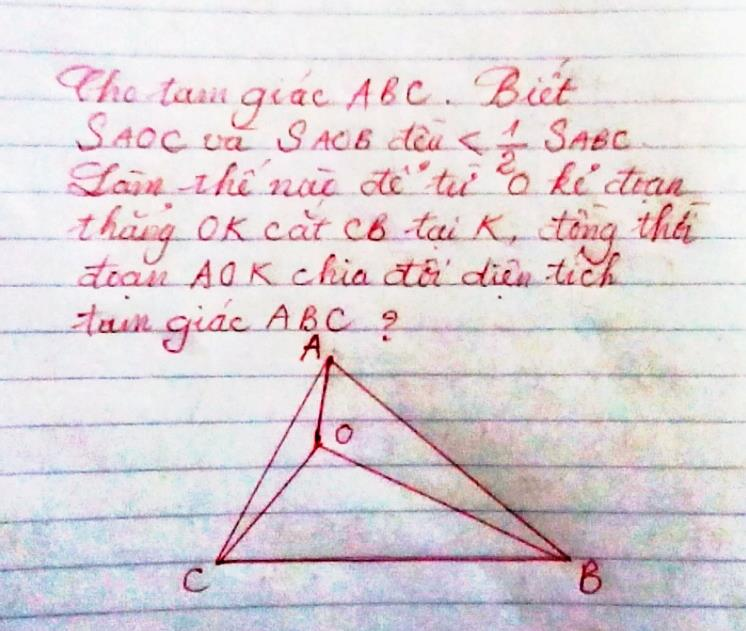 Cho tam giác ABC. Biết
SAOC và SAOB đều < 1/2 SABC
Làm thế nào để từ O kẻ đoạn
thẳng OK cắt CB tại K, đồng thời
đoạn AOK chia đôi diện tích
tam giác ABC ?
A
O
C
B